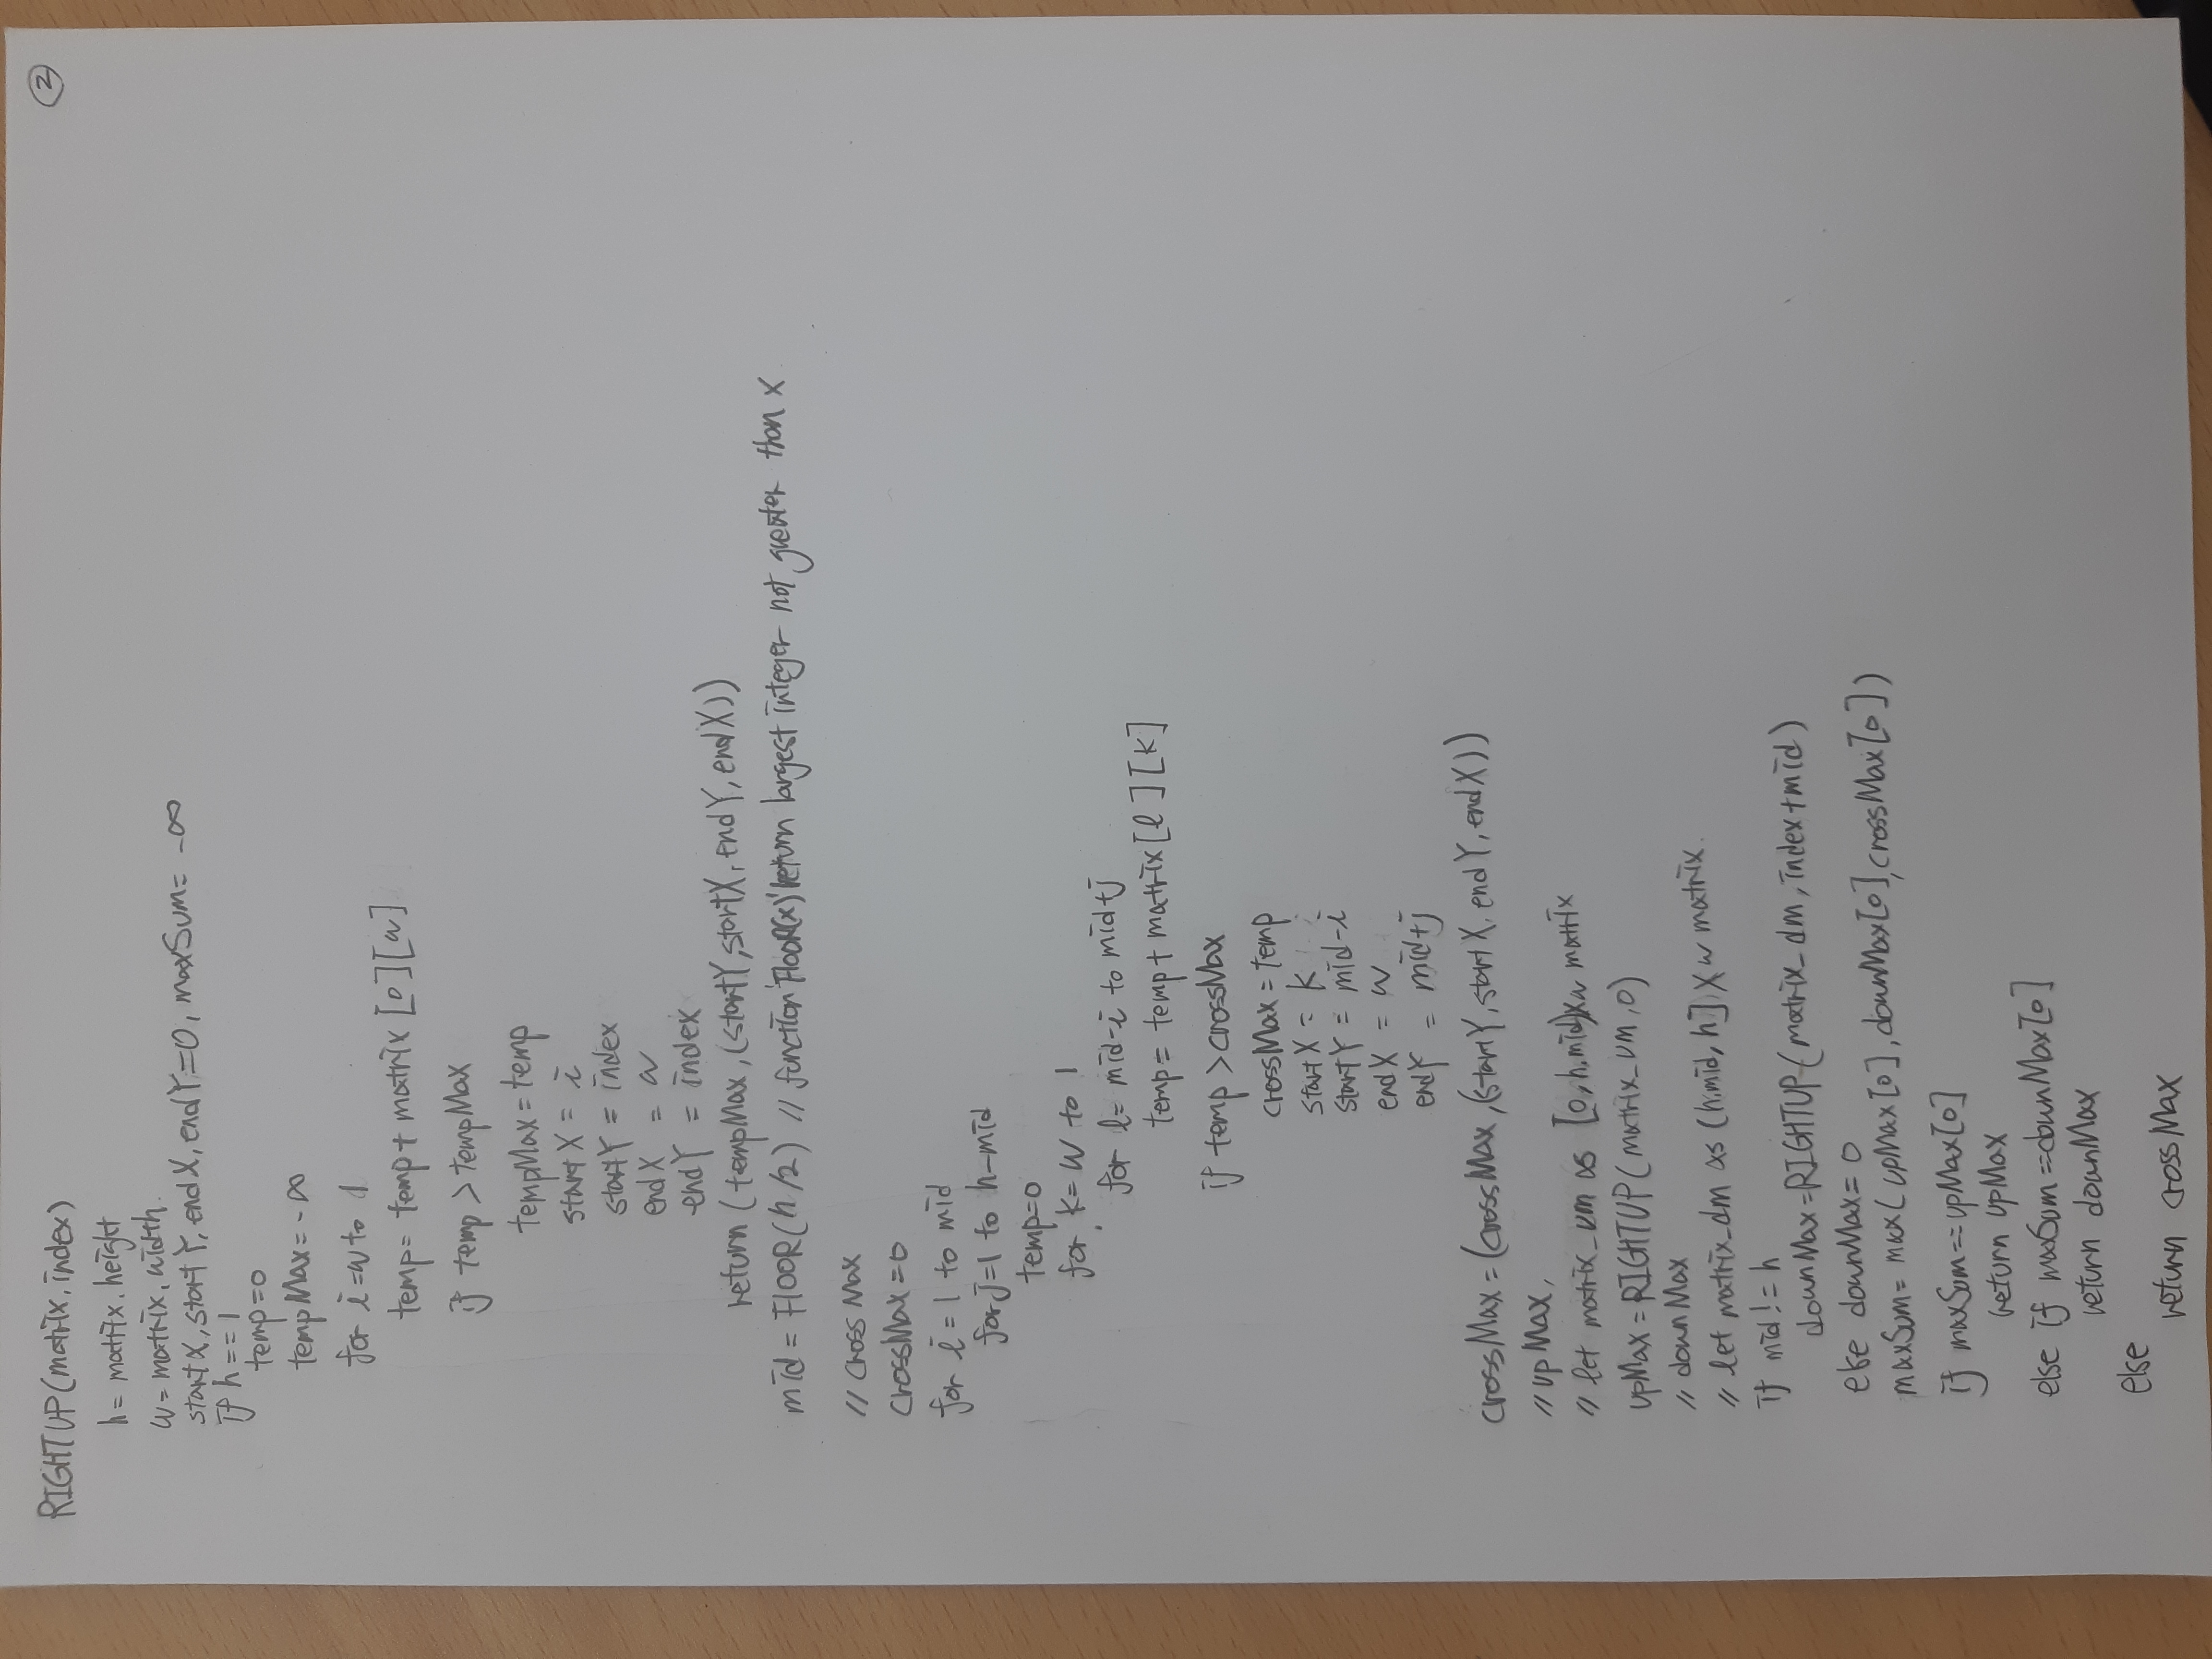 ②
RIGHTUP(matrix, index)
h= matrix. height
w= matrix. width.
startX, startY, endX, endY=0, maxSum= -∞
if h==1
temp=0
tempMax=-∞
for i=w to 1
temp= temp+ matrix [0][w]
if temp > tempMax
tempMax=temp
startX = i
startY = index
endX = w
endY = index
return (tempMax, (startY, startX, endY, endX))
mid = FLOOR(h/2) // function 'FLOOR(x)' return largest integer not greater than x
// Cross Max
crossMax=0
for i=1 to mid
for j=1 to h-mid
temp=0
for k= w to 1
for l= mid-i to mid+j
temp= temp+ matrix[l][k]
if temp >crossMax
crossMax=temp
startX = k
startY = mid-i
endX = w
endY = mid+j
crossMax=(crossMax, (startY, startX, endY, endX))
// upMax,
// let matrix_um as [0, h.mid)xw matrix
upMax=RIGHTUP(matrix_um, 0)
// downMax
// let matrix_dm as (h.mid, h] X w matrix.
if mid!=h
downMax=RIGHTUP(matrix_dm, index+mid)
else downMax=0
maxSum= max(upMax[0], downMax[0], crossMax[0])
if maxSum==upMax[0]
return upMax
else if maxSum==downMax[0]
return downMax
else
return crossMax